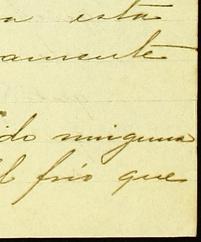 a esta
amente
ido ninguna
el frío que